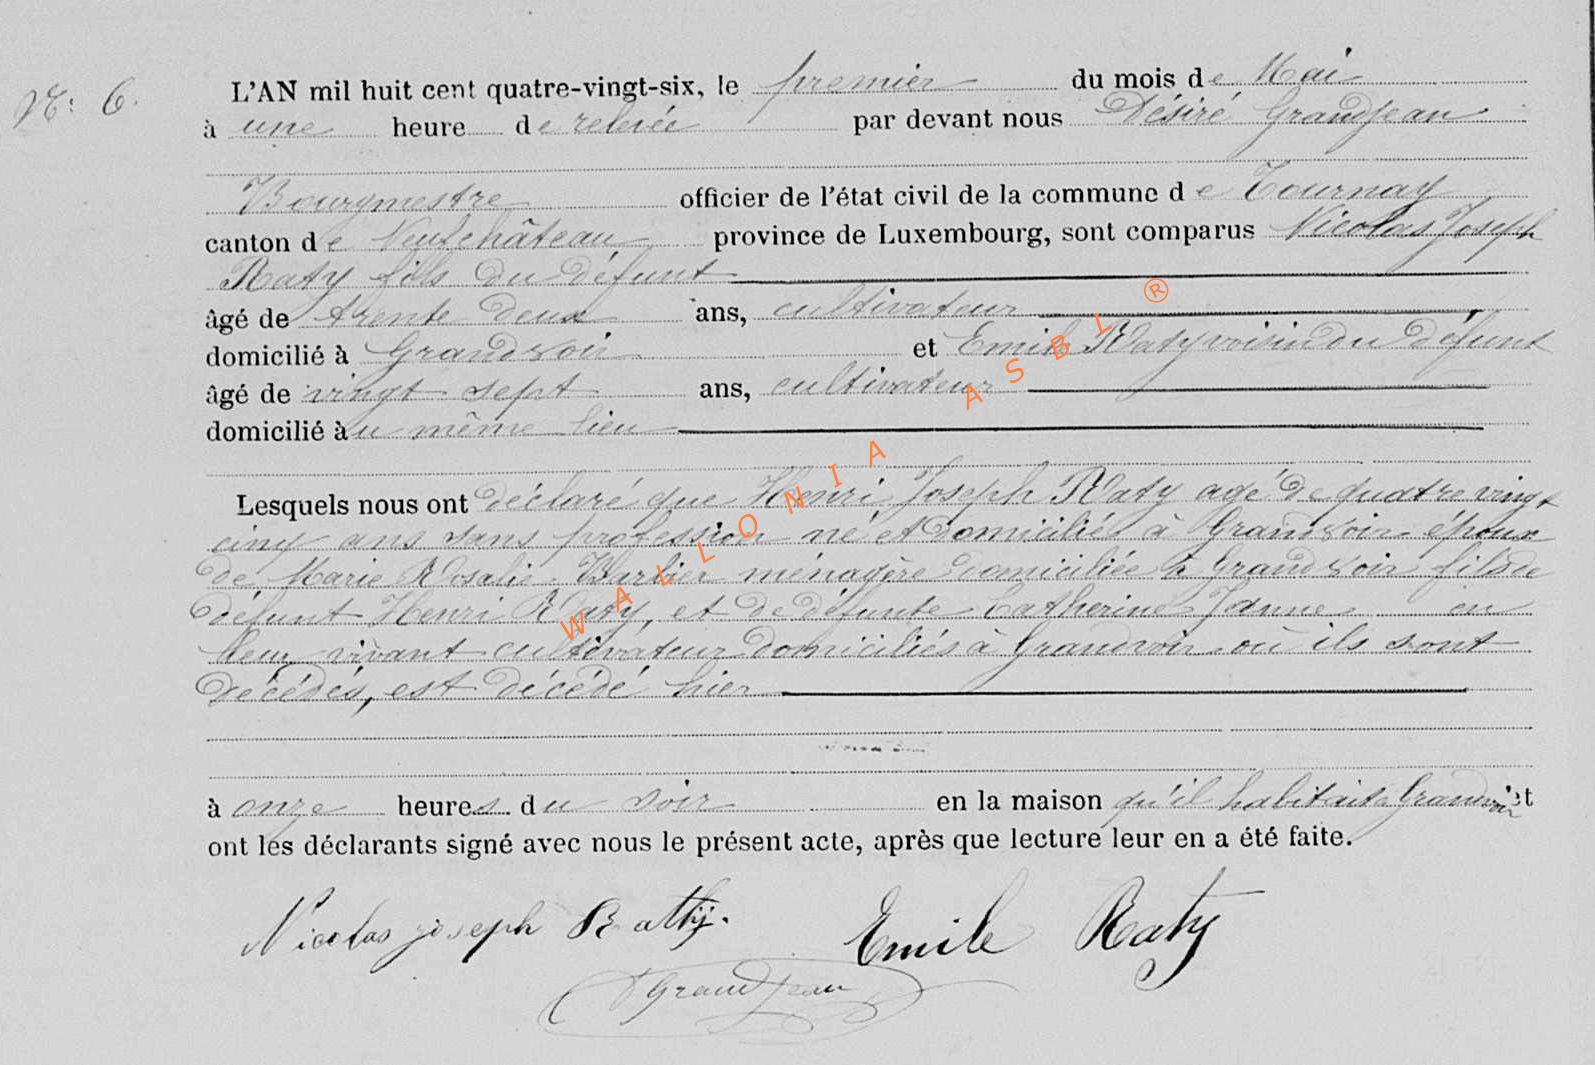 N: 6.
L'AN mil huit cent quatre-vingt-six, le premier du mois de Mai
à une heure de relevée par devant nous Désiré Grandjean
Bourgmestre officier de l'état civil de la commune de Tournay
canton de Neufchâteau province de Luxembourg, sont comparus Nicolas Joseph
Raty fils du défunt
âgé de trente deux ans, cultivateur
domicilié à Grandvoir et Emile Raty voisin du défunt
âgé de vingt sept ans, cultivateur
domicilié au même lieu
Lesquels nous ont déclaré que Henri Joseph Raty agé de quatre vingt
cinq ans sans profession né et domicilié à Grandvoir époux
de Marie Rosalie ménagère domiciliée à Grandvoir fils de
défunt Henri Raty, et de défunte Catherine Jeanne en
leur vivant cultivateur domiciliés à Grandvoir où ils sont
décédés, est décédé hier
à onze heures du soir en la maison qu'il habitait à Grandvoir et
ont les déclarants signé avec nous le présent acte, après que lecture leur en a été faite.
Nicolas joseph Rathÿ. Emile Raty
Grandjean
WALLONIA ASBL ®